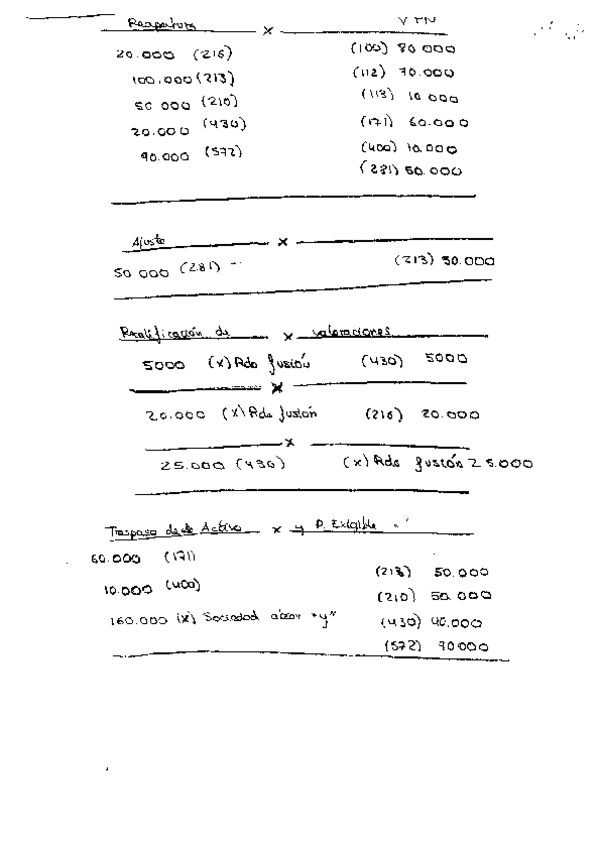 Reapertura x
20.000 (216) (100) 80 000
100.000 (213) (112) 70.000
50 000 (210) (113) 10 000
20.000 (430) (171) 60.000
90.000 (572) (400) 10.000
(281) 50.000
Ajuste x
50 000 (281) (213) 50.000
Recalificación de x valoraciones
5000 (x) Rdo fusión (430) 5000
x
20.000 (x) Rdo fusión (216) 20.000
x
25.000 (430) (x) Rdo fusión 25.000
Traspaso de Activo x y P. Exigible
60.000 (171)
(213) 50.000
10.000 (400)
(210) 50.000
160.000 (x) Sociedad "y" (430) 40.000
(572) 90000